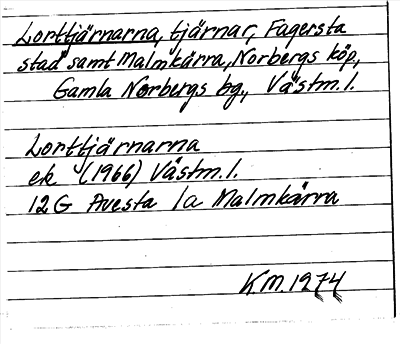 Lorttjärnarna, tjärnar, Fagersta
stad samt Malmkärra, Norbergs köp,
Gamla Norbergs bg., Västm. l.
Lorttjärnarna
ek (1966) Västm. l.
12G Avesta 1a Malmkärra
KM. 1974